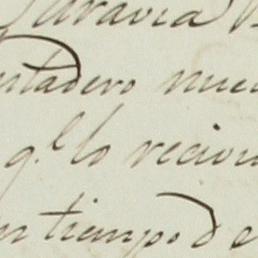 Saravia
ntadero nue
q.e lo reciu
n tiempo de